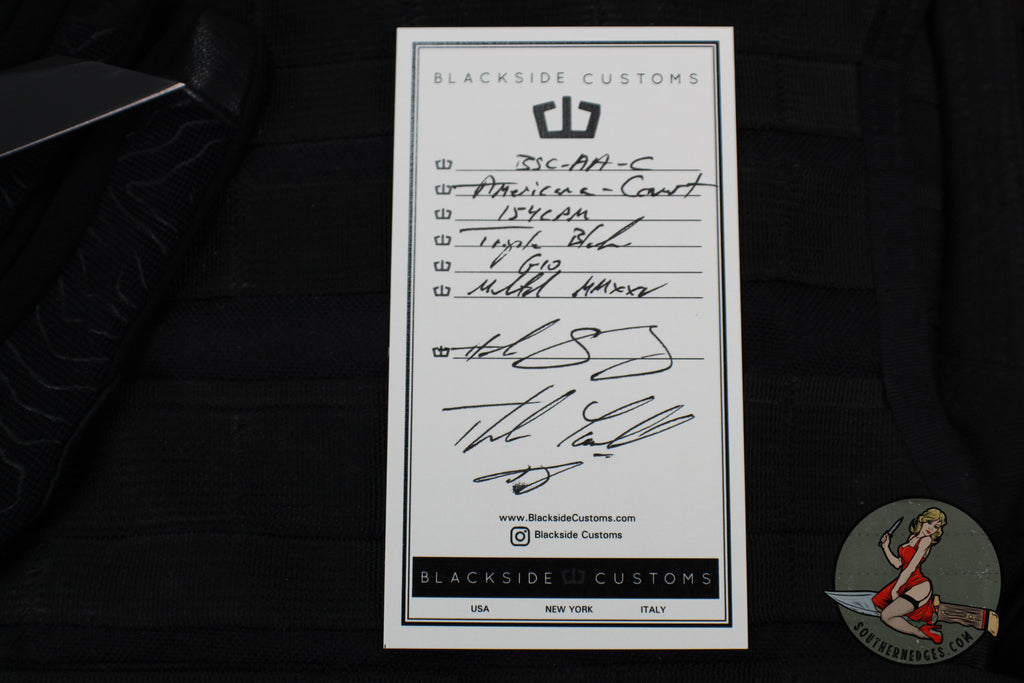 BLACKSIDE CUSTOMS
BSC-AA-C
Americana - Comet
154CPM
Triple Black
G10
MMXXV
www.BlacksideCustoms.com
Blackside Customs
BLACKSIDE CUSTOMS
USA NEW YORK ITALY
SOUTHERNEDGES.COM